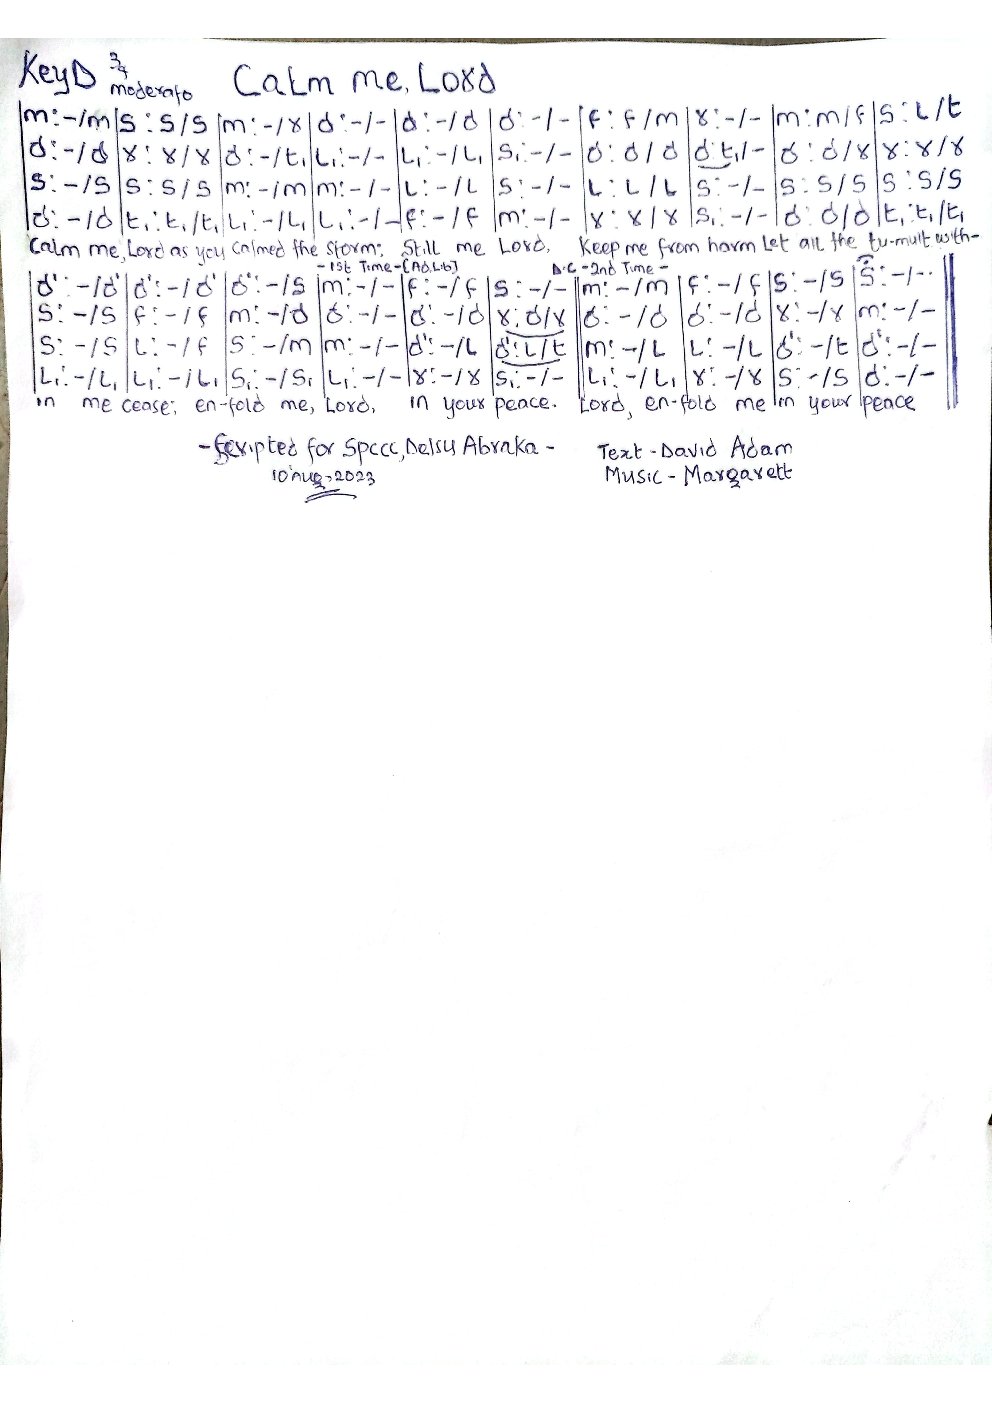 Key D 3/4 moderato Calm me, Lord
|m:-/m|s:s/s|m:-/r|d:-/-|d:-/d|d:-/-|f:f/m|r:-/-|m:m/f|s:l/t
|d:-/d|r:r/r|d:-/t₁|l₁:-/-|l₁:-/l₁|s₁:-/-|d:d/d|d:t₁/-|d:d/r|r:r/r
|s:-/s|s:s/s|m:-/m|m:-/-|l:-/l|s:-/-|l:l/l|s:-/-|s:s/s|s:s/s
|d:-/d|t₁:t₁/t₁|l₁:-/l₁|l₁:-/-|f:-/f|m:-/-|r:r/r|s₁:-/-|d:d/d|t₁:t₁/t₁
Calm me, Lord as you calmed the storm; Still me Lord, Keep me from harm Let all the tu-mult with-
-1st Time-[Ad.Lib] D.C-2nd Time-
|d':-/d'|d':-/d'|d':-/s|m:-/-|f:-/f|s:-/-||m:-/m|f:-/f|s:-/s|s:-/-||
|s:-/s|f:-/f|m:-/d|d:-/-|d:-/d|r:d/r||d:-/d|d:-/d|r:-/r|m:-/-||
|s:-/s|l:-/f|s:-/m|m:-/-|d':-/l|d':l/t||m:-/l|l:-/l|d':-/t|d':-/-||
|l₁:-/l₁|l₁:-/l₁|s₁:-/s₁|l₁:-/-|r:-/r|s₁:-/-||l₁:-/l₁|r:-/r|s:-/s|d:-/-||
in me cease; en-fold me, Lord, in your peace. Lord, en-fold me in your peace
-Scripted for Spccc, Delsu Abraka- Text-David Adam
10 Aug, 2023 Music-Margarett